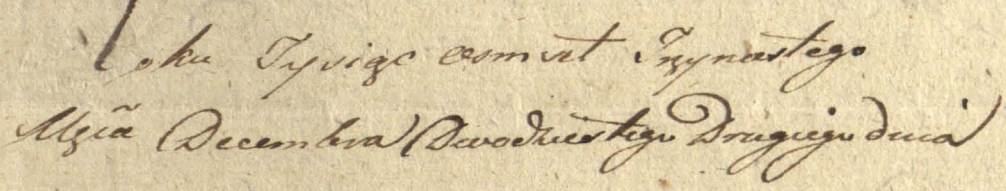 Roku Tysiąc osmset Trzynastego
Mca Decembra Dwodziestego Drugiego dnia